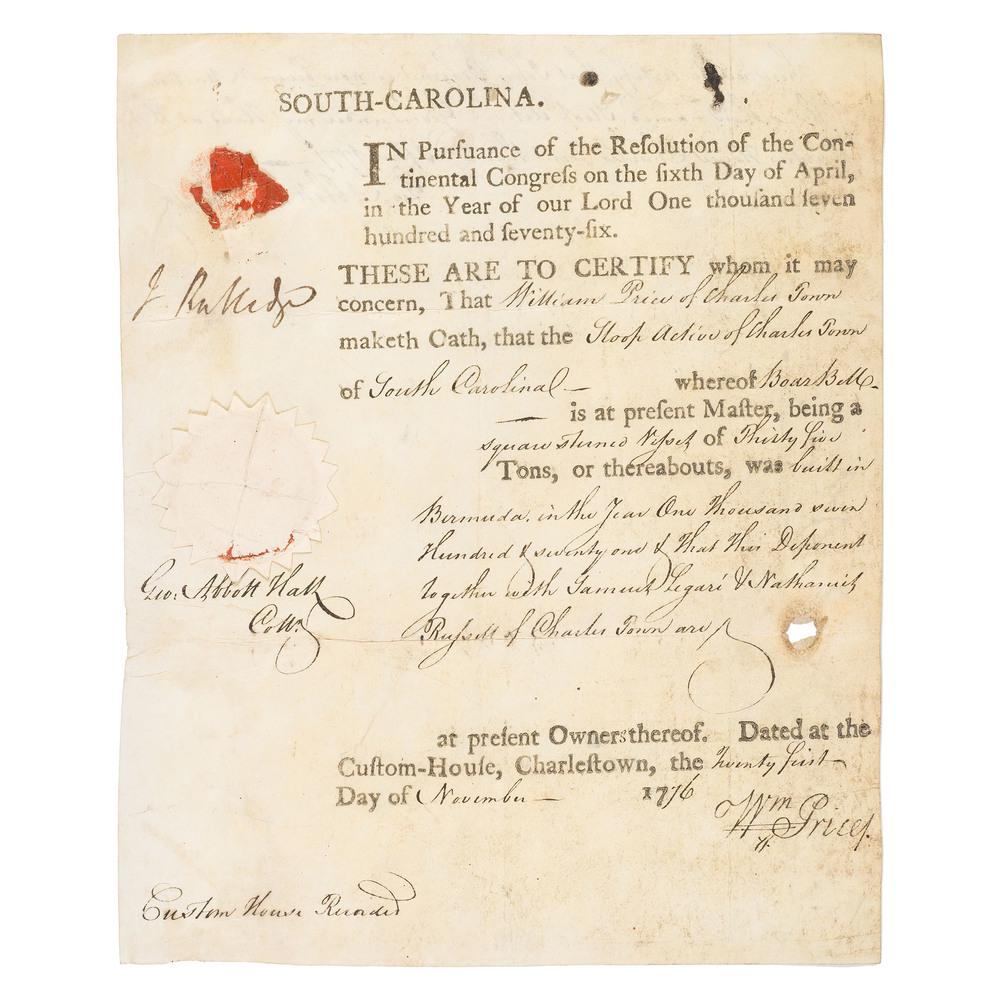 SOUTH-CAROLINA.
IN Purſuance of the Reſolution of the Con-
tinental Congreſs on the ſixth Day of April,
in the Year of our Lord One thouſand ſeven
hundred and ſeventy-ſix.
THESE ARE TO CERTIFY whom it may
concern, That William Price of Charles Town
maketh Oath, that the Sloop Active of Charles Town
of South Carolina — whereof Boaz Bell —
— is at preſent Maſter, being a
square sterned Vessel of Thirty five
Tons, or thereabouts, was built in
Bermuda in the Year One Thousand seven
Hundred & seventy one & That This Deponent
together with Samuel Legaré & Nathaniel
Russell of Charles Town are
at preſent Owners thereof. Dated at the
Cuſtom-Houſe, Charleſtown, the Twenty first —
Day of November — 1776
Wm Price
J Rutledge
Geo: Abbott Hall
Collr
Custom House Recorded